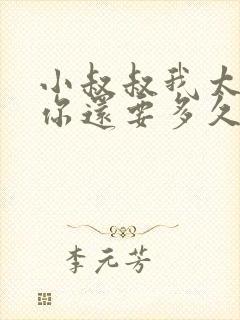 小叔叔我大
你還要多久
李元芳